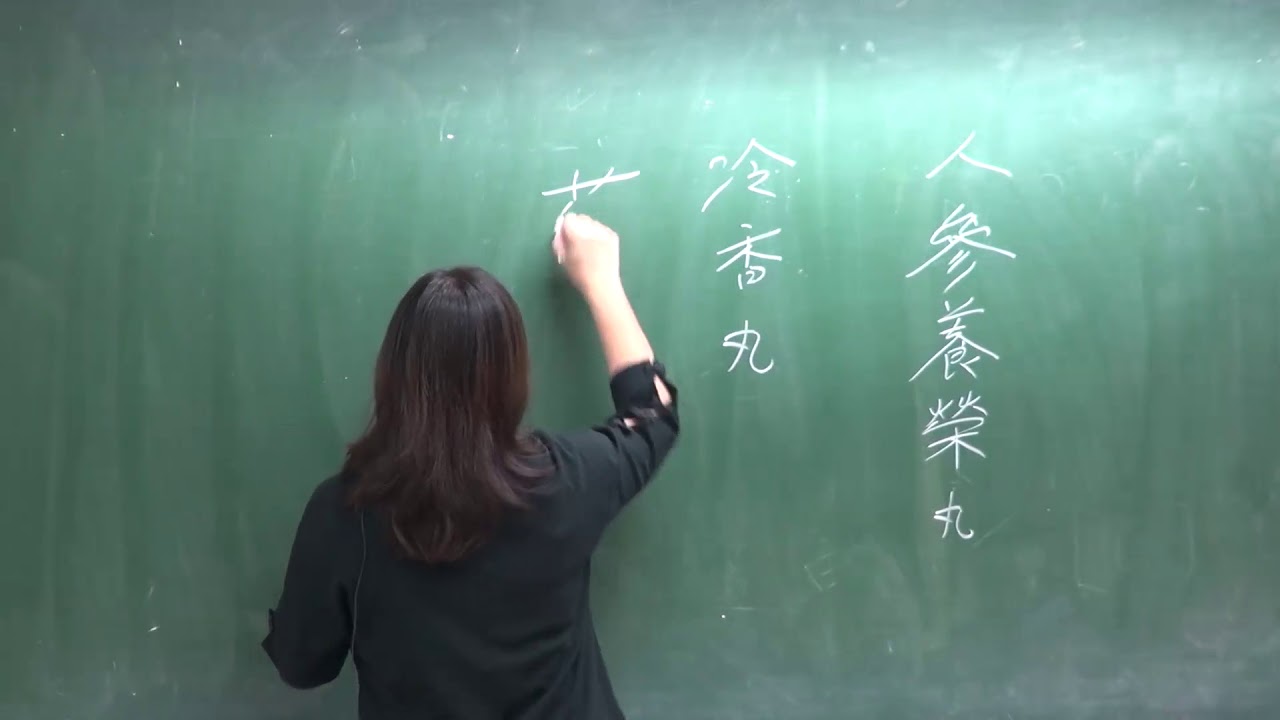 人參養榮丸
冷香丸